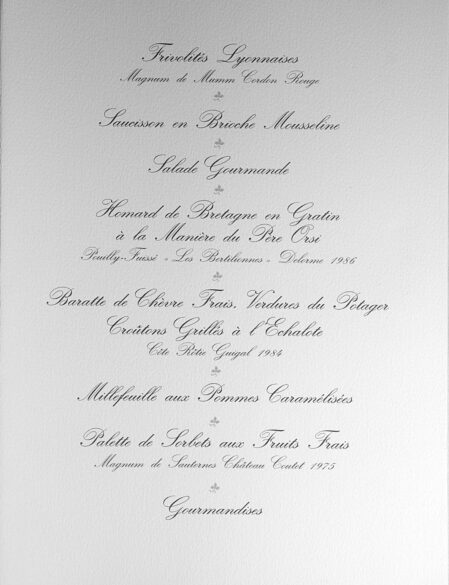 Frivolités Lyonnaises
Magnum de Mumm Cordon Rouge
Saucisson en Brioche Mousseline
Salade Gourmande
Homard de Bretagne en Gratin
à la Manière du Père Orsi
Pouilly-Fuissé « Les Bertiliennes » Delorme 1986
Baratte de Chèvre Frais, Verdures du Potager
Croûtons Grillés à l'Echalote
Côte Rôtie Guigal 1984
Millefeuille aux Pommes Caramélisées
Palette de Sorbets aux Fruits Frais
Magnum de Sauternes Château Coutet 1975
Gourmandises